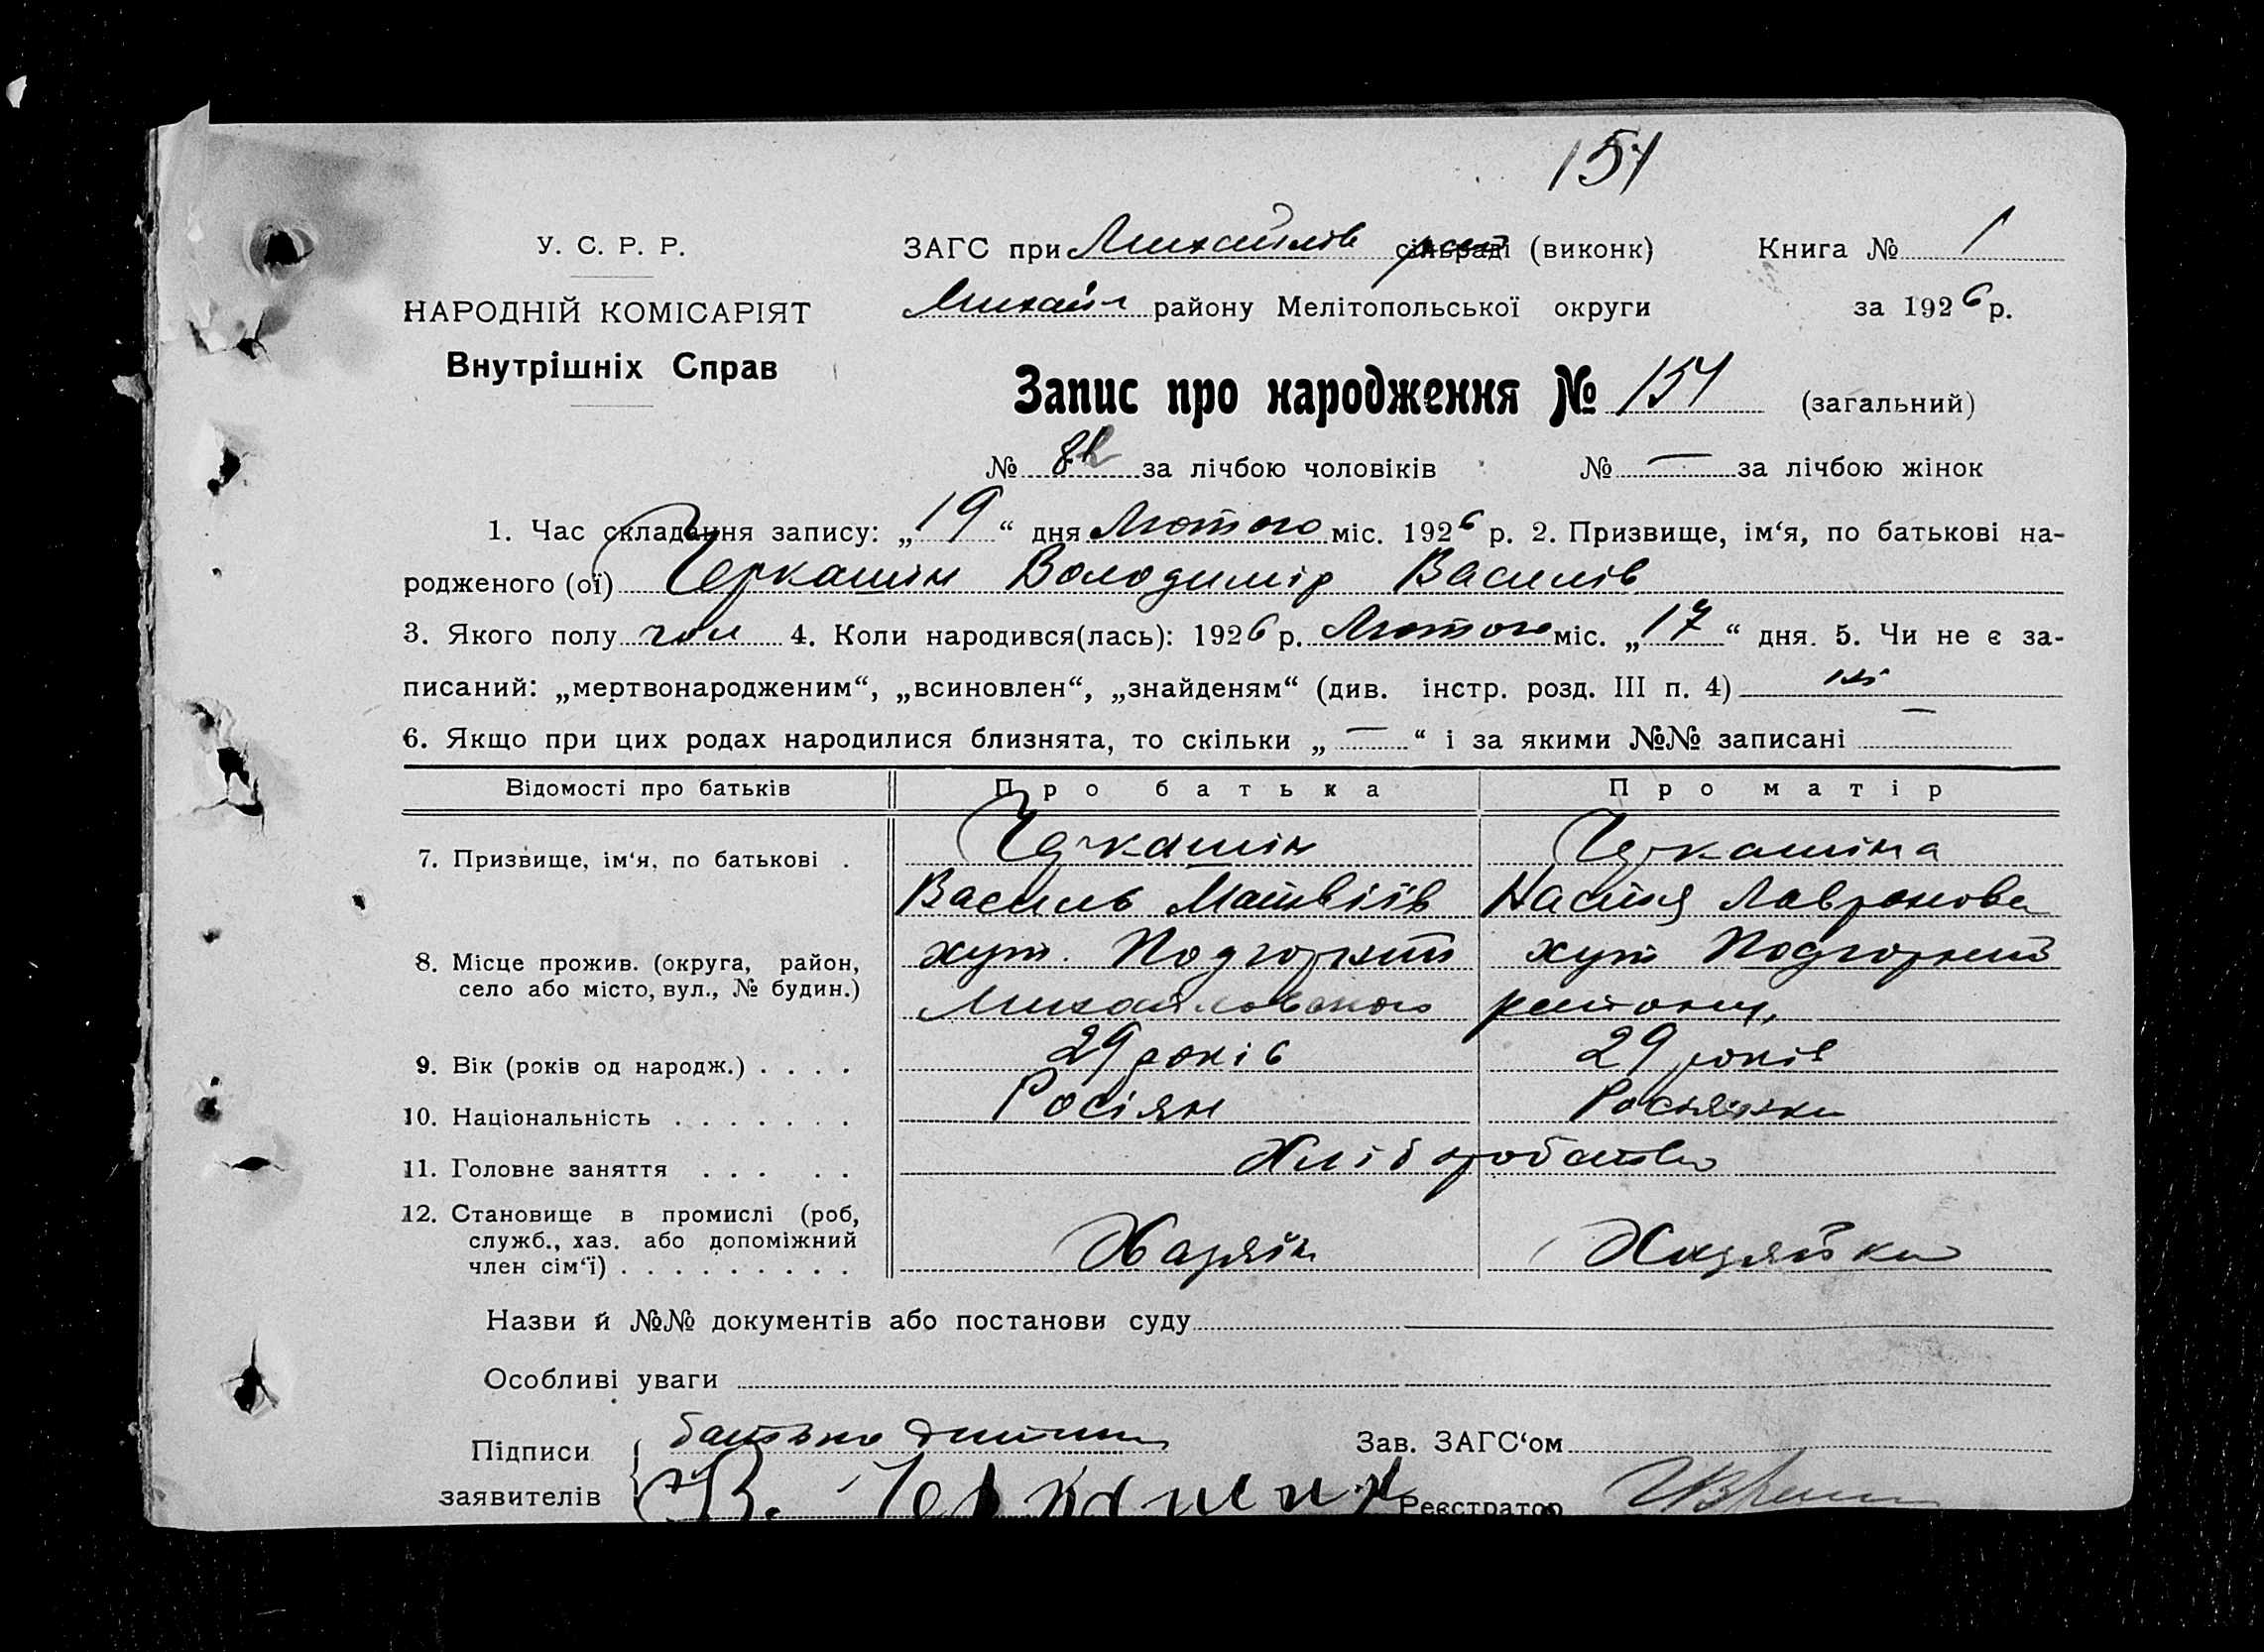 154
У. С. Р. Р.
НАРОДНІЙ КОМІСАРІЯТ
Внутрішніх Справ
ЗАГС при Михайлів сільраді (виконк)
Книга № 1
Михайл району Мелітопольської округи
за 1926 р.
Запис про народження № 154 (загальний)
№ 82 за лічбою чоловіків № — за лічбою жінок
1. Час складання запису: „19“ дня Лютого міс. 1926 р. 2. Призвище, ім‘я, по батькові на-
родженого (ої) Черкашін Володимір Василів
3. Якого полу чол 4. Коли народився(лась): 1926 р. Лютого міс. „17“ дня. 5. Чи не є за-
писаний: „мертвонародженим“, „всиновлен“, „знайденям“ (див. інстр. розд. III п. 4) ні
6. Якщо при цих родах народилися близнята, то скільки „—“ і за якими №№ записані —
Відомості про батьків Про батька Про матір
7. Призвище, ім‘я, по батькові . Черкашін Черкашіна
Василь Матвіїв Настя Лавронова
8. Місце прожив. (округа, район, село або місто, вул., № будин.) хут. Подгорний хут Подгорний
Михайловского району,
9. Вік (років од народж.) . . . . 29 років 29 років
10. Національність . . . . . . . Росіян Росіянка
11. Головне заняття . . . . . Хліборобство
12. Становище в промислі (роб, служб., хаз. або допоміжний член сім‘ї) . . . . . . . . . Хазяїн Хазяйка
Назви й №№ документів або постанови суду
Особливі уваги
Підписи заявителів батько дитини
В. Черкашин
Зав. ЗАГС‘ом
Реєстратор